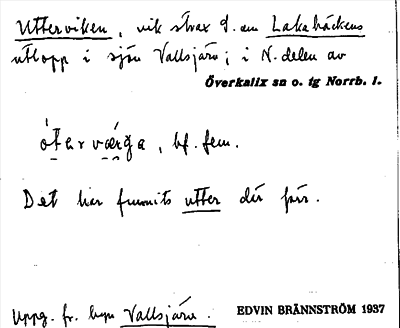 Utterviken, vik strax S. om Lakabäckens
utlopp i sjön Vallsjärv; i N. delen av
Överkalix sn o. tg Norrb. l.
ót̀ar væ̀rga, bf. fem.
Det har funnits utter där förr.
Uppg. fr. byn Vallsjärv.
EDVIN BRÄNNSTRÖM 1937